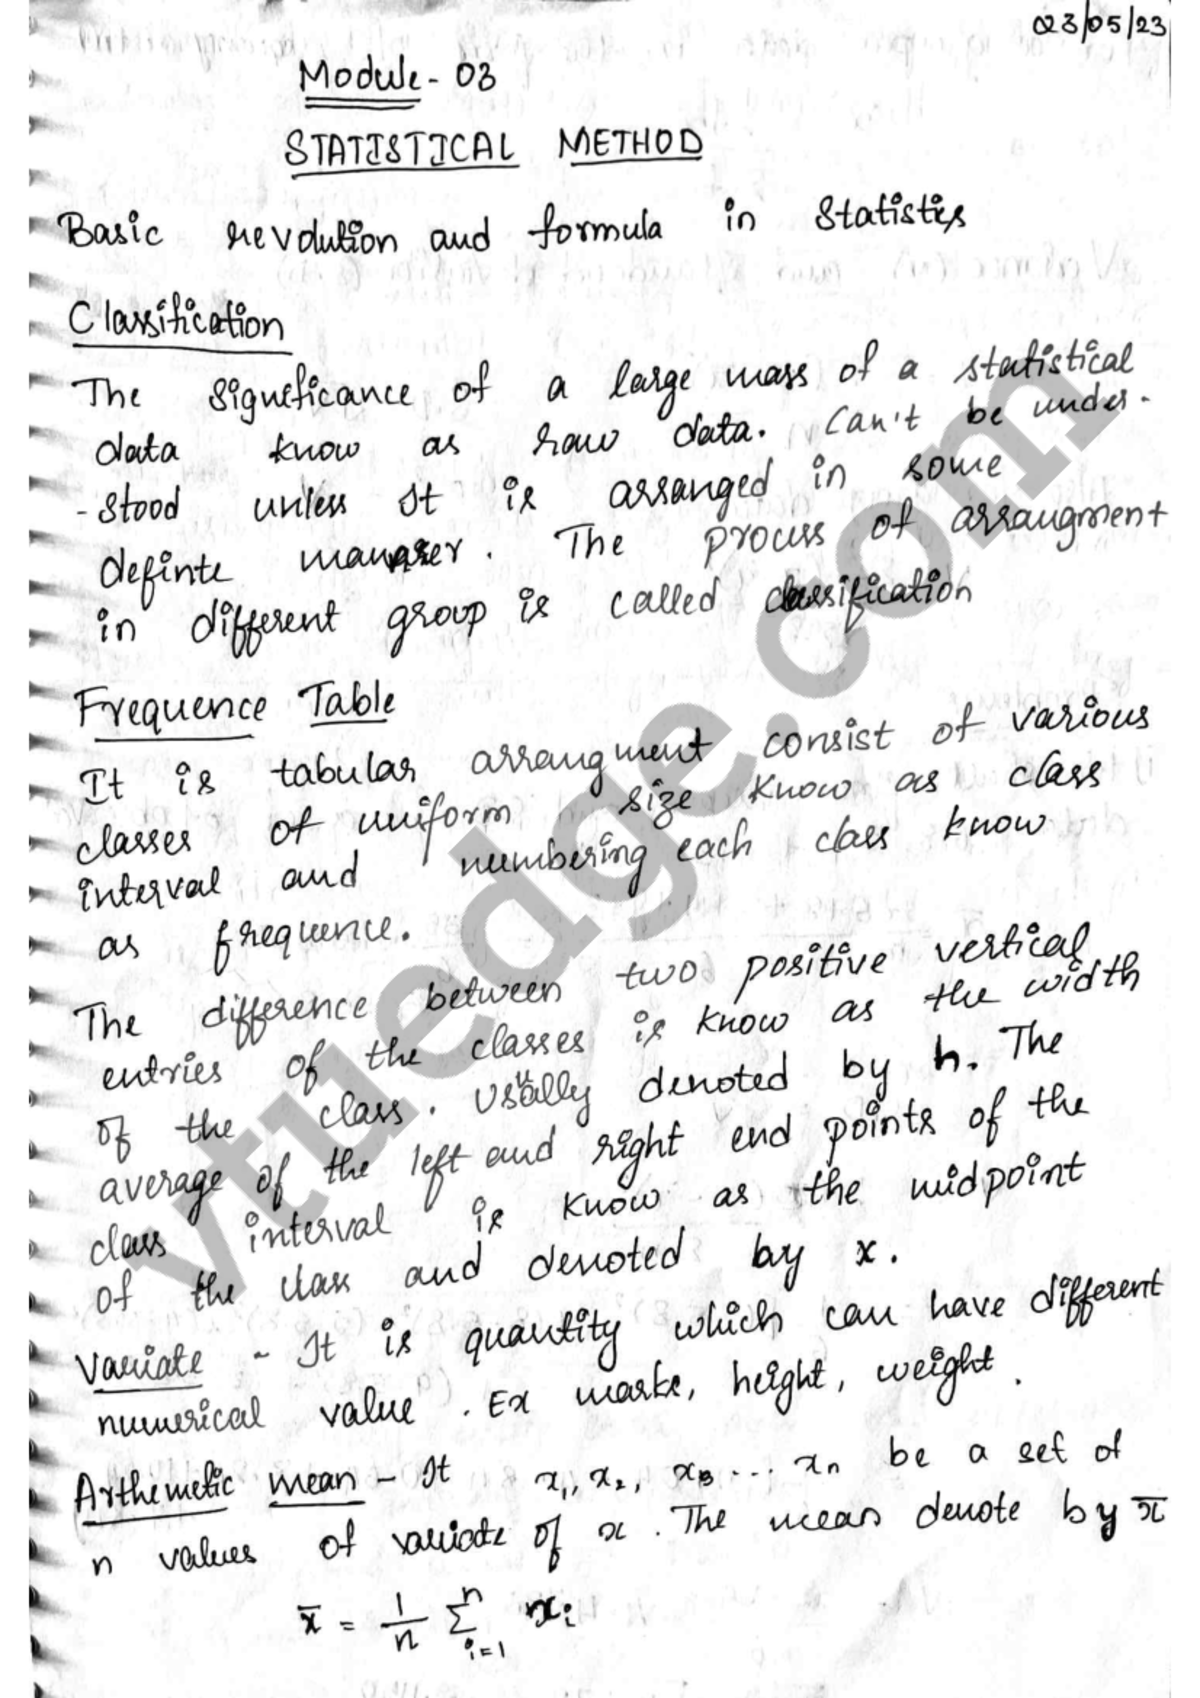 23/05/23
Module - 03
STATISTICAL METHOD
Basic revolution and formula in Statistics
Classification
The significance of a large mass of a statistical
data know as raw data. Can't be under-
-stood unless It is arranged in some
definte manner. The process of arrangment
in different group is called classification
Frequence Table
It is tabular arrangment consist of various
classes of uniform size know as class
interval and numbering each class know
as frequence.
The difference between two positive vertical
entries of the classes is know as the width
of the class. Usually denoted by h. The
average of the left and right end points of the
class interval is know as the midpoint
of the class and denoted by x.
Variate - It is quantity which can have different
numerical value. Ex marks, height, weight.
Arthemetic mean - It x₁, x₂, x₃ ... xₙ be a set of
n values of variate of x. The mean denote by x̄
x̄ = 1/n Σᵢ₌₁ⁿ xᵢ
vtuedge.com